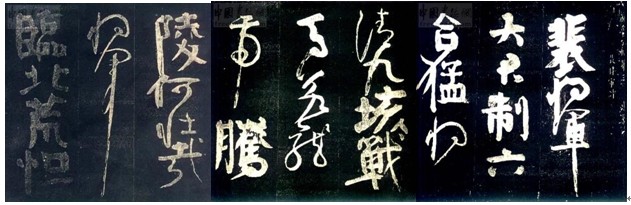 裴將軍
大君制六
合猛將
清九垓戰
馬若龍
虎騰
陵何壯哉
將軍
臨北荒